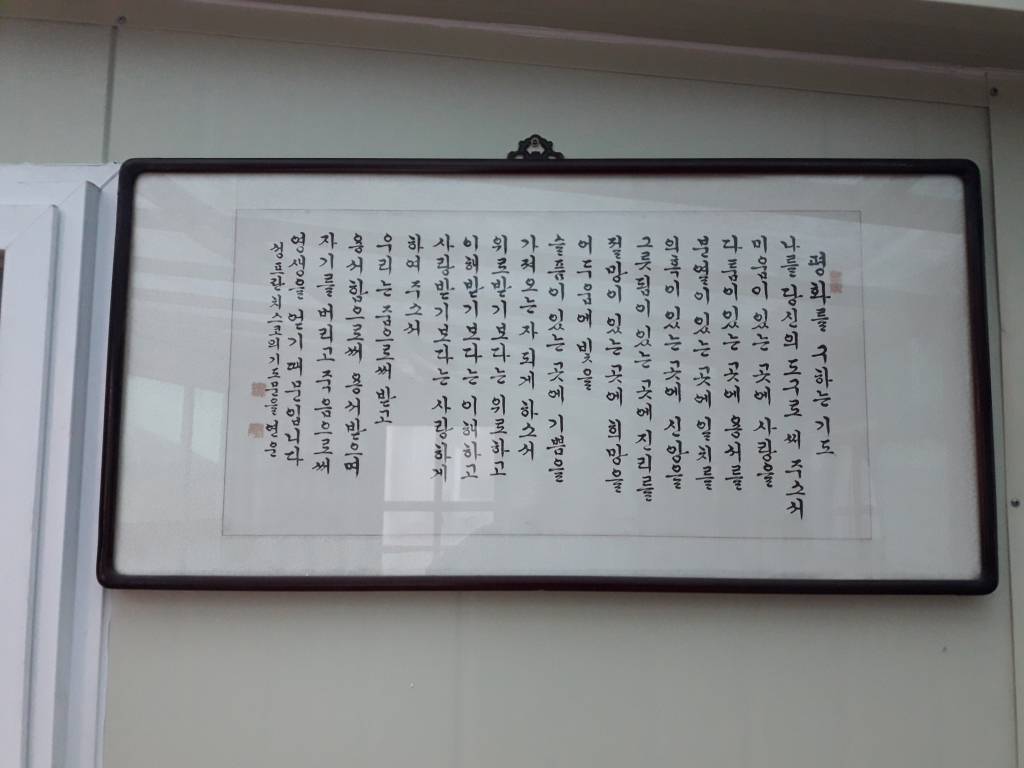 평화를 구하는 기도
나를 당신의 도구로 써 주소서
미움이 있는 곳에 사랑을
다툼이 있는 곳에 용서를
분열이 있는 곳에 일치를
의혹이 있는 곳에 신앙을
그릇됨이 있는 곳에 진리를
절망이 있는 곳에 희망을
어두움에 빛을
슬픔이 있는 곳에 기쁨을
가져오는 자 되게 하소서
위로받기보다는 위로하고
이해받기보다는 이해하고
사랑받기보다는 사랑하게
하여 주소서
우리는 줌으로써 받고
용서함으로써 용서받으며
자기를 버리고 죽음으로써
영생을 얻기 때문입니다
성프란치스코의 기도문을 연운